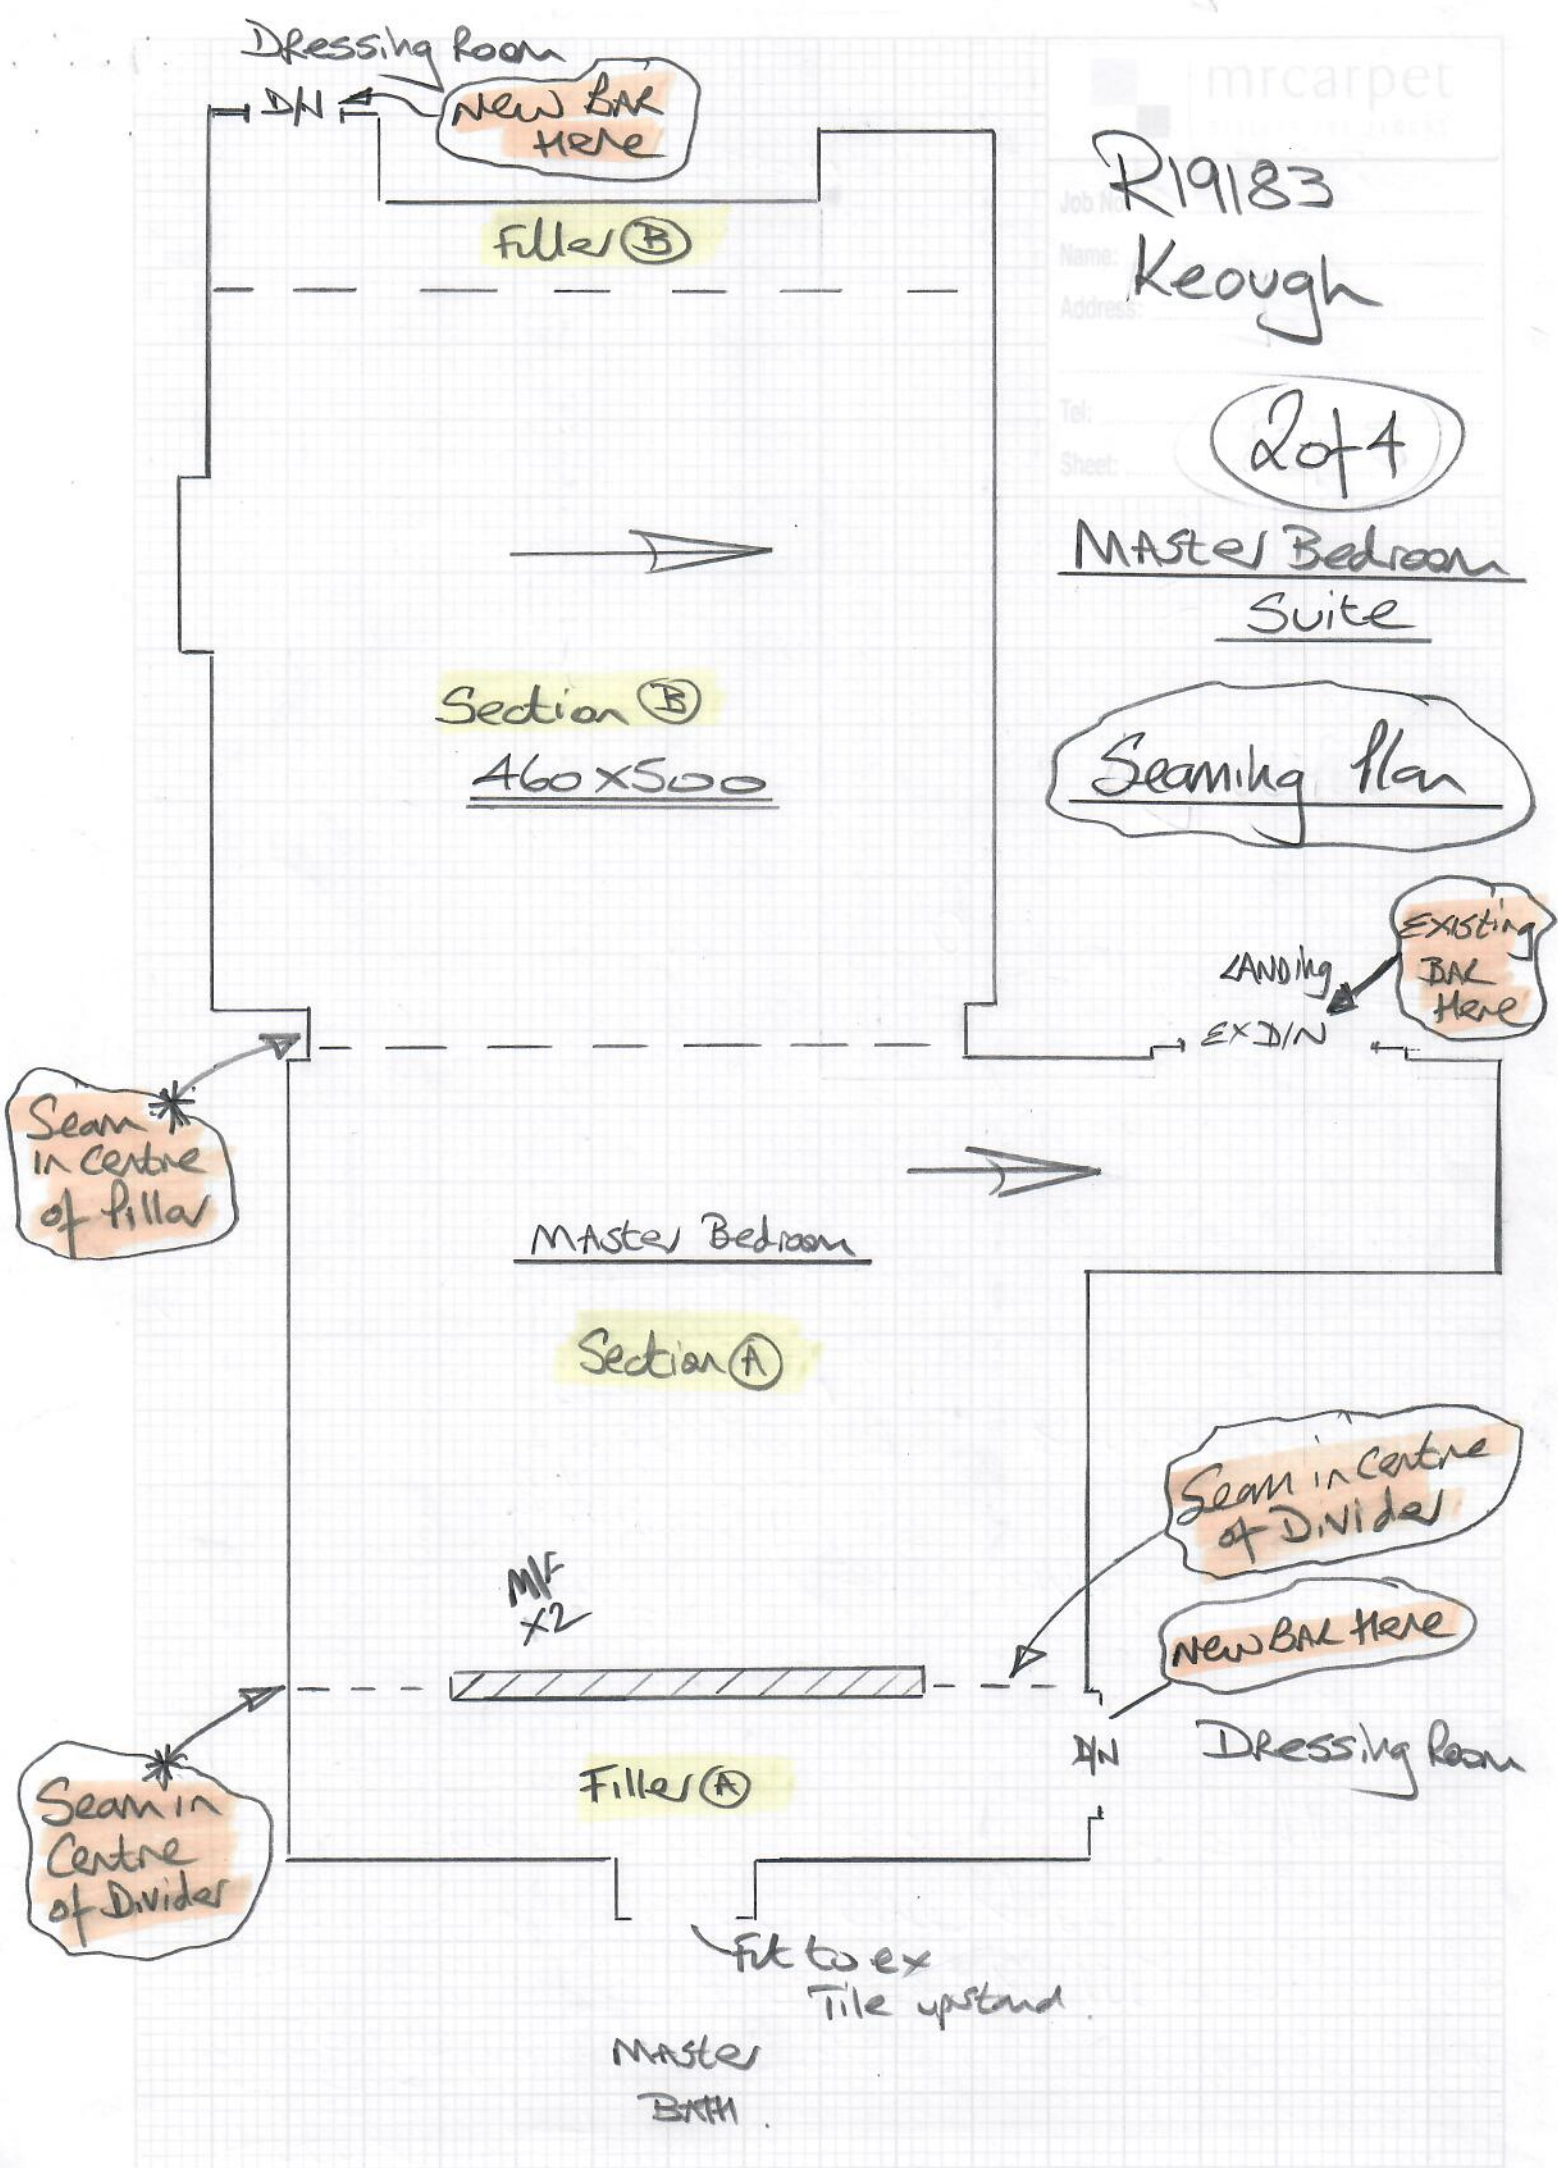 Dressing Room
D/N
New BAR
Here
mrcarpet
Job No
R19183
Name:
Keough
Address:
Tel:
Sheet:
2 of 4
Filler B
Master Bedroom
Suite
Section B
460 x 500
Seaming Plan
Existing
BAR
Here
LANDing
EX D/N
Seam
in Centre
of Pillar
Master Bedroom
Section A
Seam in Centre
of Divider
M/F
x2
New BAR Here
D/N
Dressing Room
Filler A
Seam in
Centre
of Divider
Fit to ex
Tile upstand.
Master
BATH.